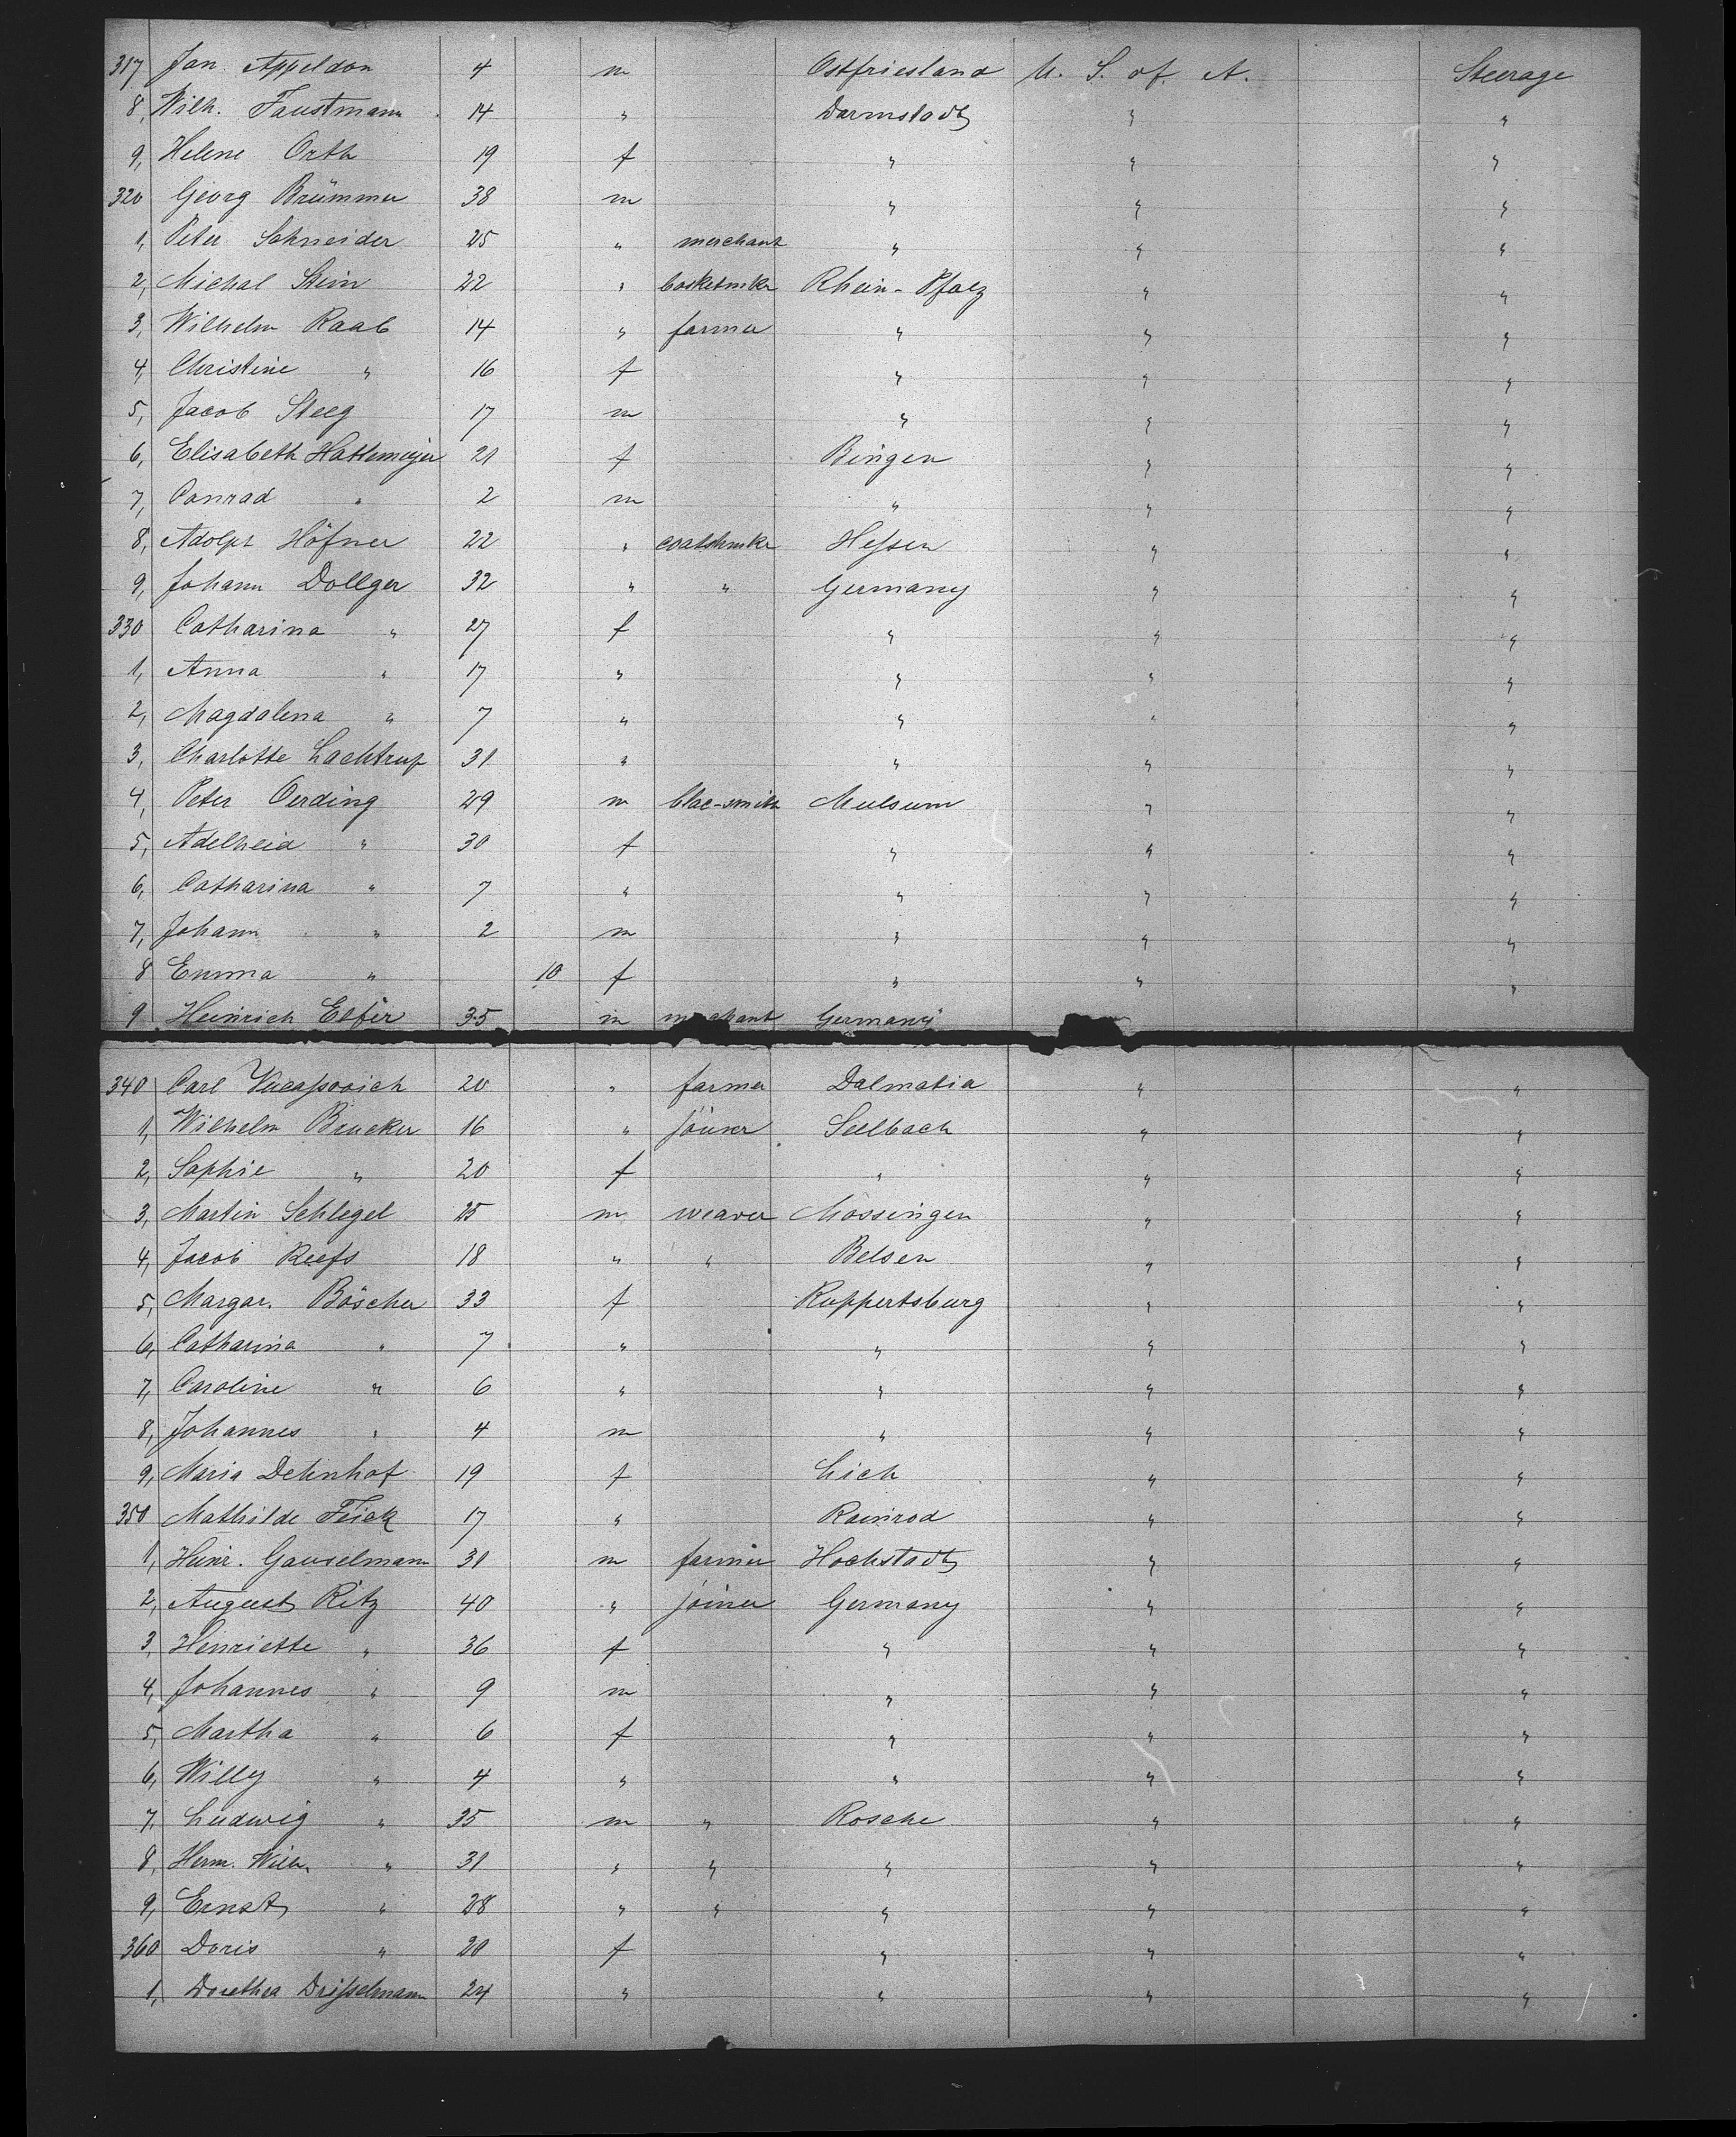 317 Jan Appeldon 4 m Ostfriesland U. S. of A. Steerage
8, Wilh. Faustmann 14 " Darmstadt " "
9, Helene Orth 19 f " " "
320 Georg Brümmer 38 m " " "
1, Peter Schneider 25 " merchant " " "
2, Michal Stein 22 " basketmker Rhein-Pfalz " "
3, Wilhelm Raab 14 " farmer " " "
4, Christine " 16 f " " "
5, Jacob Steeg 17 m " " "
6, Elisabeth Hattemeyer 21 f Bingen " "
7, Conrad " 2 m " " "
8, Adolph Höfner 22 " Hessen " "
9, Johann Dollger 32 " " Germany " "
330 Catharina " 27 f " " "
1, Anna " 17 " " " "
2, Magdalena " 7 " " " "
3, Charlotte Lachtrup 31 " " " "
4, Peter Oerding 29 m blac-smith Mulsum " "
5, Adelheid " 30 f " " "
6, Catharina " 7 " " " "
7, Johann " 2 m " " "
8 Emma " 10 f " " "
9 Heinrich 35 m merchant Germany
340 Carl 20 " farmer Dalmatia " "
1, Wilhelm Brucker 16 " joiner Seelbach " "
2, Sophie " 20 f " " "
3, Martin Schlegel 25 m weaver Mössingen " "
4, Jacob Reefs 18 " " Belsen " "
5, Margar. Böscher 33 f Ruppertsburg " "
6, Catharina " 7 " " " "
7, Caroline " 6 " " " "
8, Johannes " 4 m " " "
9, Maria Dehnhof 19 f Lich " "
350 Mathilde Feick 17 " Rainrod " "
1, Heinr. Gauselmann 31 m farmer Hochstadt " "
2, August Ritz 40 " joiner Germany " "
3, Henriette " 36 f " " "
4, Johannes " 9 m " " "
5, Martha " 6 f " " "
6, Willy " 4 " " " "
7, Ludwig " 35 m " Rosche " "
8, Herm. Wilh. " 31 " " " " "
9, Ernst " 28 " " " " "
360 Doris " 20 f " " "
1, Dorethea Drisselmann 24 " " " "